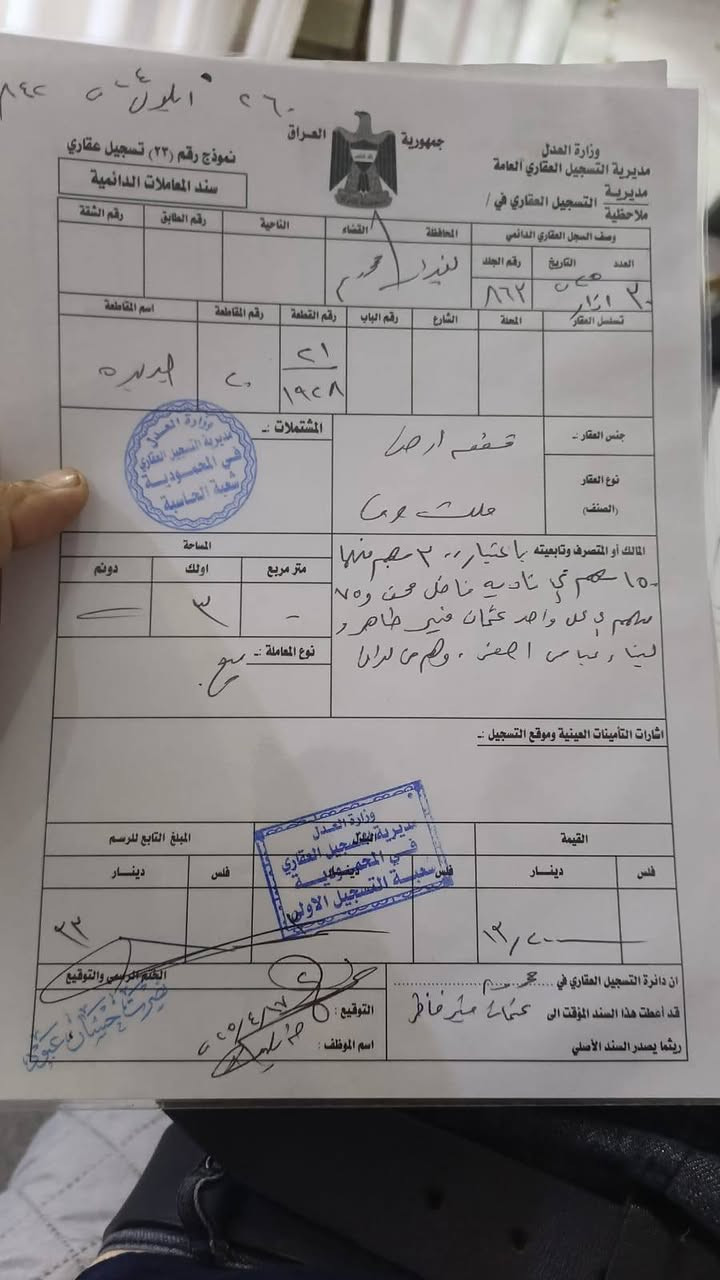 ٢٦٠ ايلول
٨٤٢
جمهورية العراق
وزارة العدل
مديرية التسجيل العقاري العامة
مديرية
ملاحظية
التسجيل العقاري في /
نموذج رقم (٢٣) تسجيل عقاري
سند المعاملات الدائمية
وصف السجل العقاري الدائمي
المحافظة القضاء الناحية رقم الطابق رقم الشقة
العدد التاريخ رقم الجلد
بغداد
٣٠ اذار ٨٦٢
تسلسل العقار المحلة الشارع رقم الباب رقم القطعة رقم المقاطعة اسم المقاطعة
٢١
١٩٢٨
جنس العقار :-
قطعه ارض
المشتملات :-
وزارة العدل
مديرية التسجيل العقاري
في المحمودية
شعبة الحاسبة
نوع العقار
(الصنف)
ملك
المالك أو المتصرف وتابعيته باعتبار ٣٠٠ سهم منها
١٥٠ سهم الى ناديه فاضل و ٧٥
سهم الى كل واحد عثمان منير طاهر و
عباس
المساحة
متر مربع اولك دونم
- ٣
نوع المعاملة :- بيع
اشارات التأمينات العينية وموقع التسجيل :-
القيمة المبلغ التابع للرسم
فلس دينار فلس دينار فلس دينار
وزارة العدل
مديرية التسجيل العقاري
في المحمودية
شعبة التسجيل الاولى
٢٣
ان دائرة التسجيل العقاري في
قد أعطت هذا السند المؤقت الى عثمان منير طاهر
ريثما يصدر السند الأصلي
التوقيع :
٢٠٢٥/٤/١٧
اسم الموظف :
الختم الرسمي والتوقيع